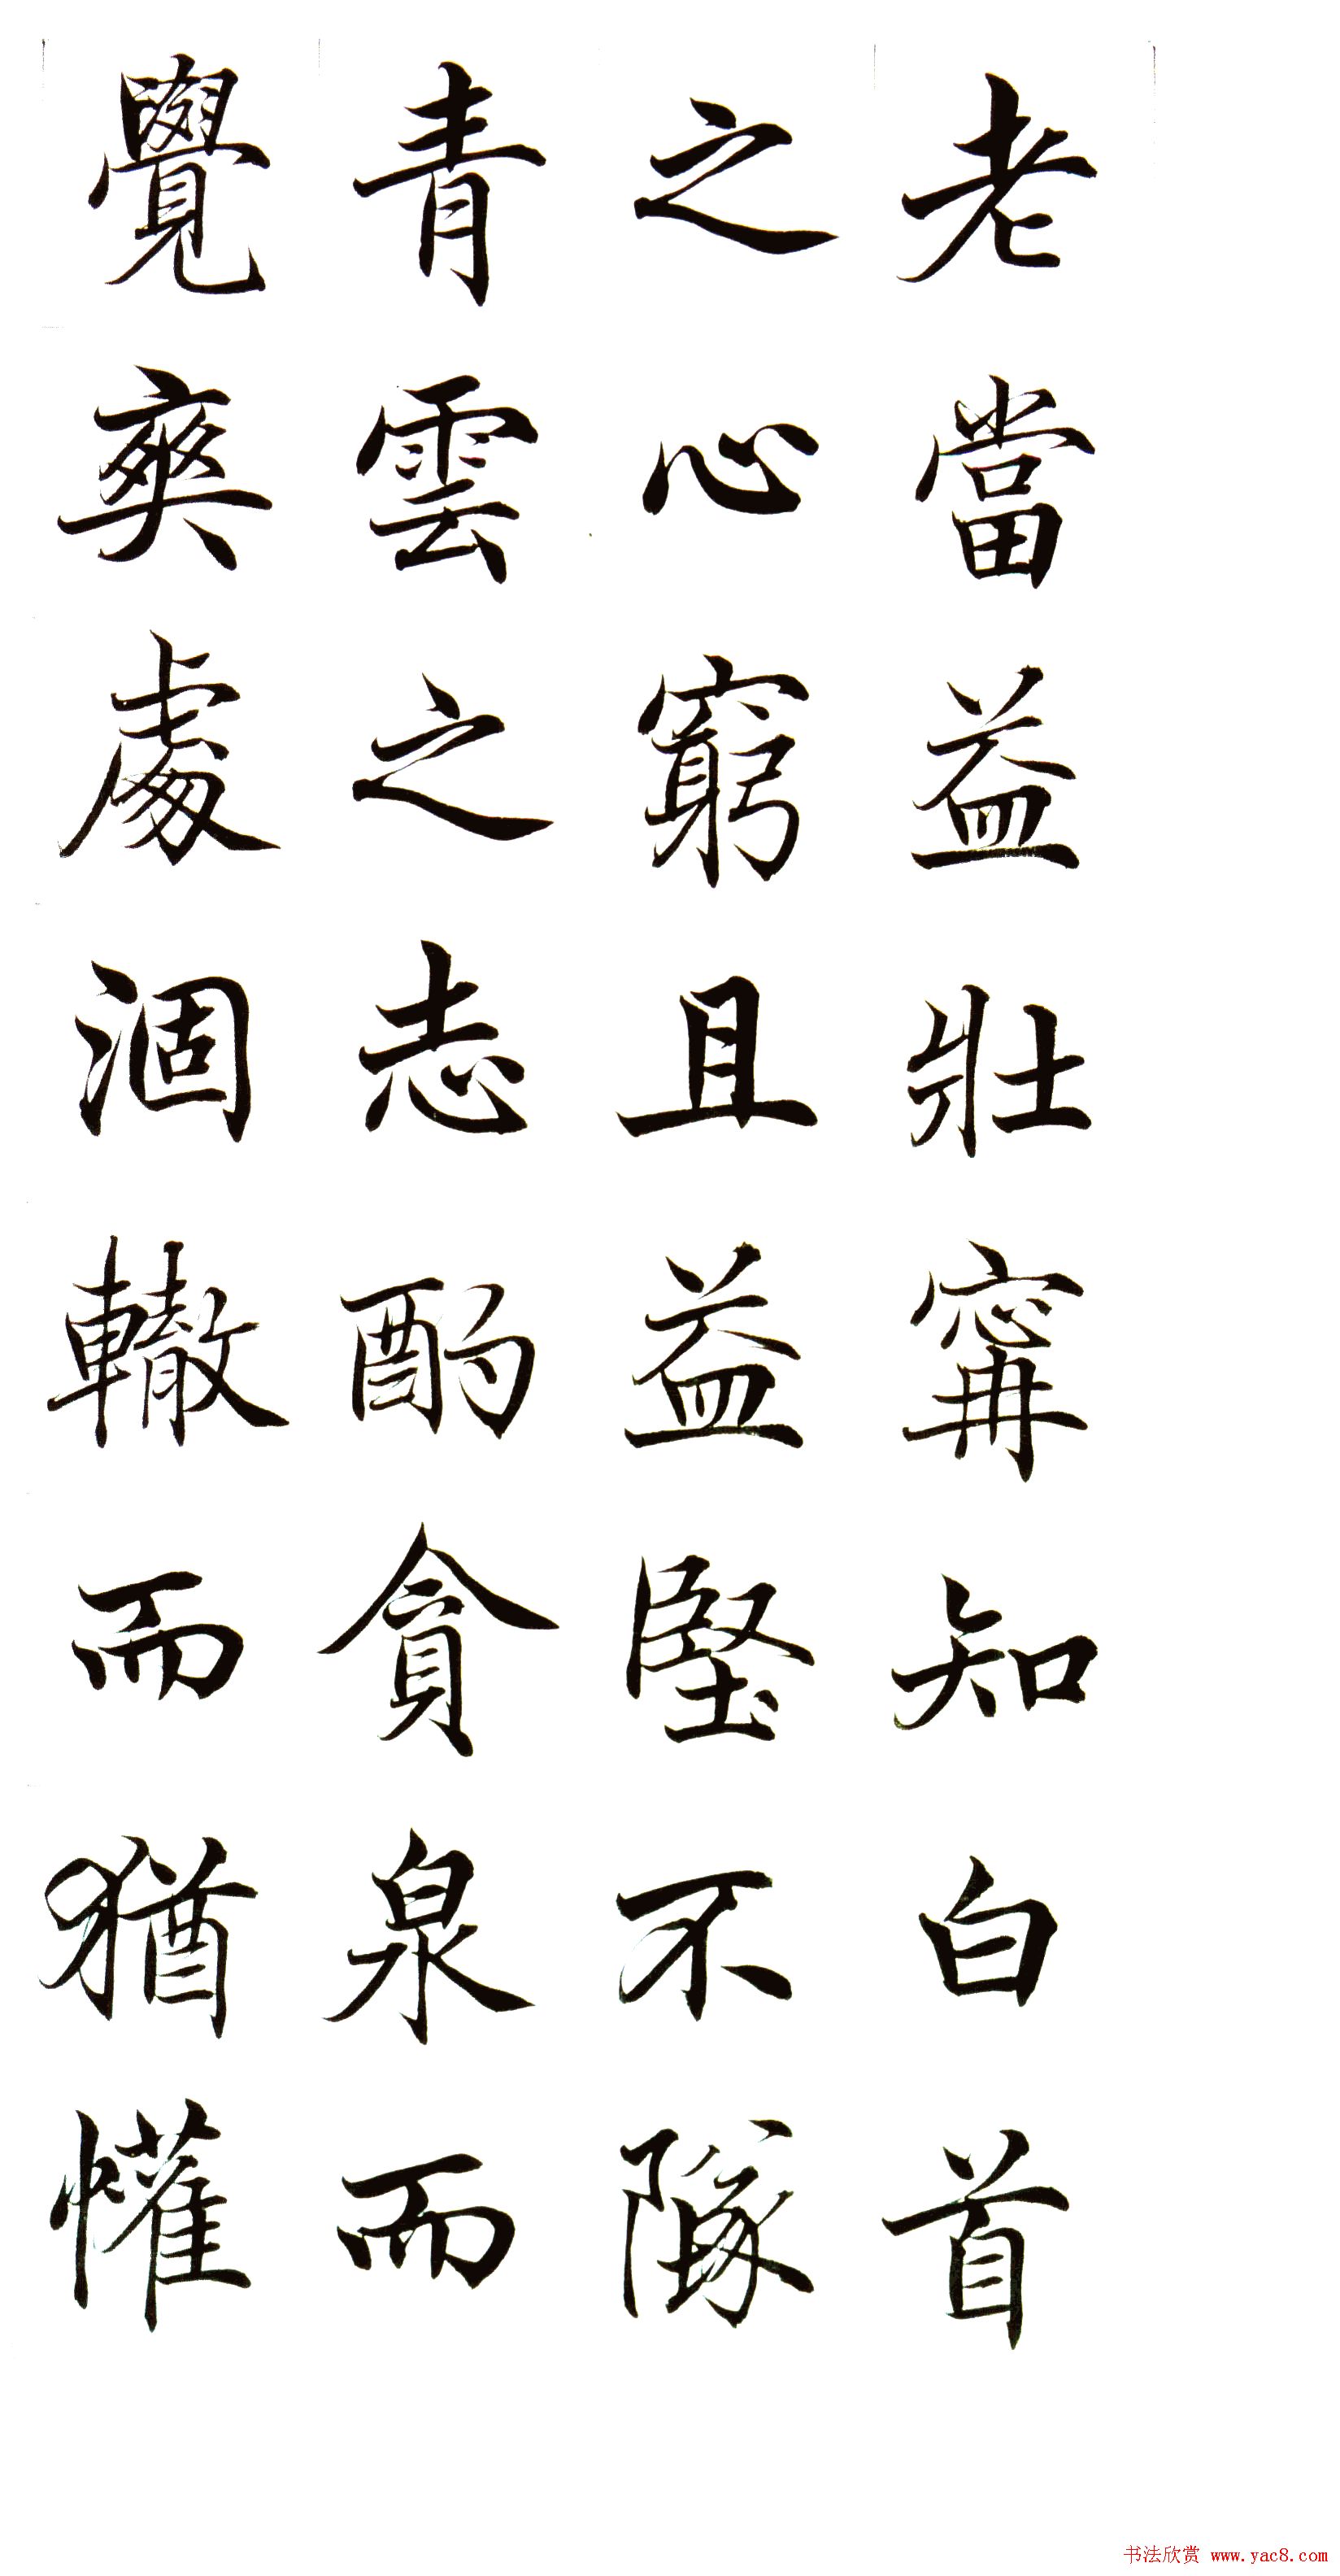 老當益壯寧知白首
之心窮且益堅不隊
青雲之志酌貪泉而
覺爽處涸轍而猶懽
书法欣赏 www.yac8.com